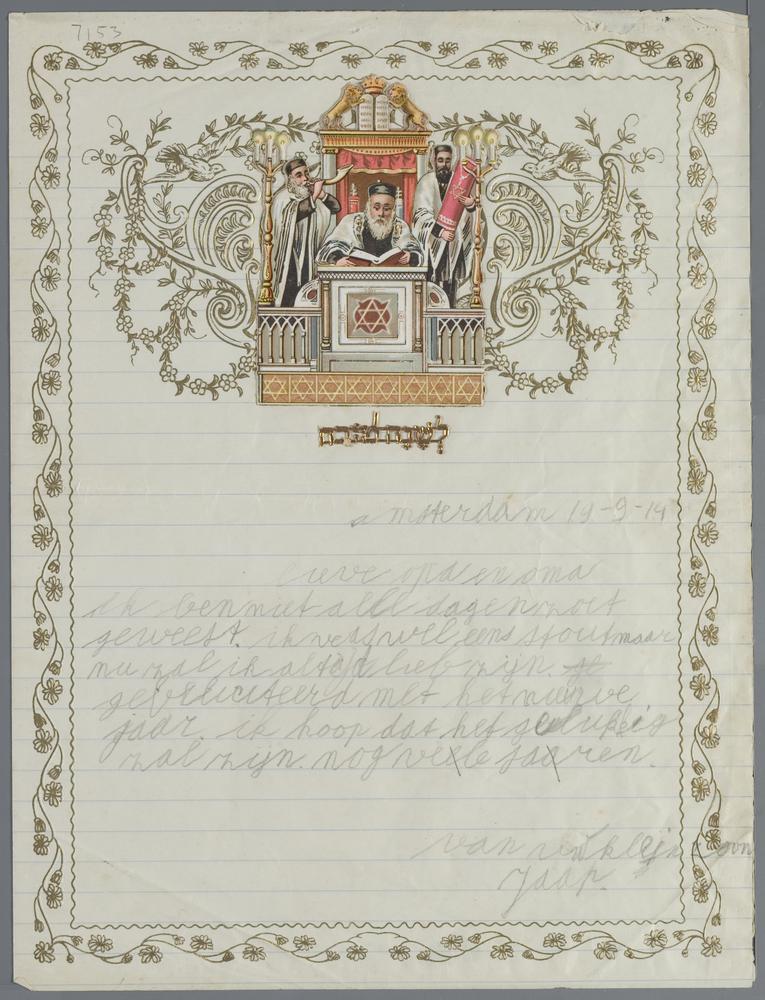 7153
לשנה טובה
amsterdam 19-9-14
lieve opa en oma
ik ben niet alle dagen zoet
geweest. ik was wel eens stout maar
nu zal ik altijd lief zijn.
gefeliciteerd met het nieuwe
jaar. ik hoop dat het gelukkig
zal zijn. nog veele jaaren.
van uw kleijnzoon
Jaap.